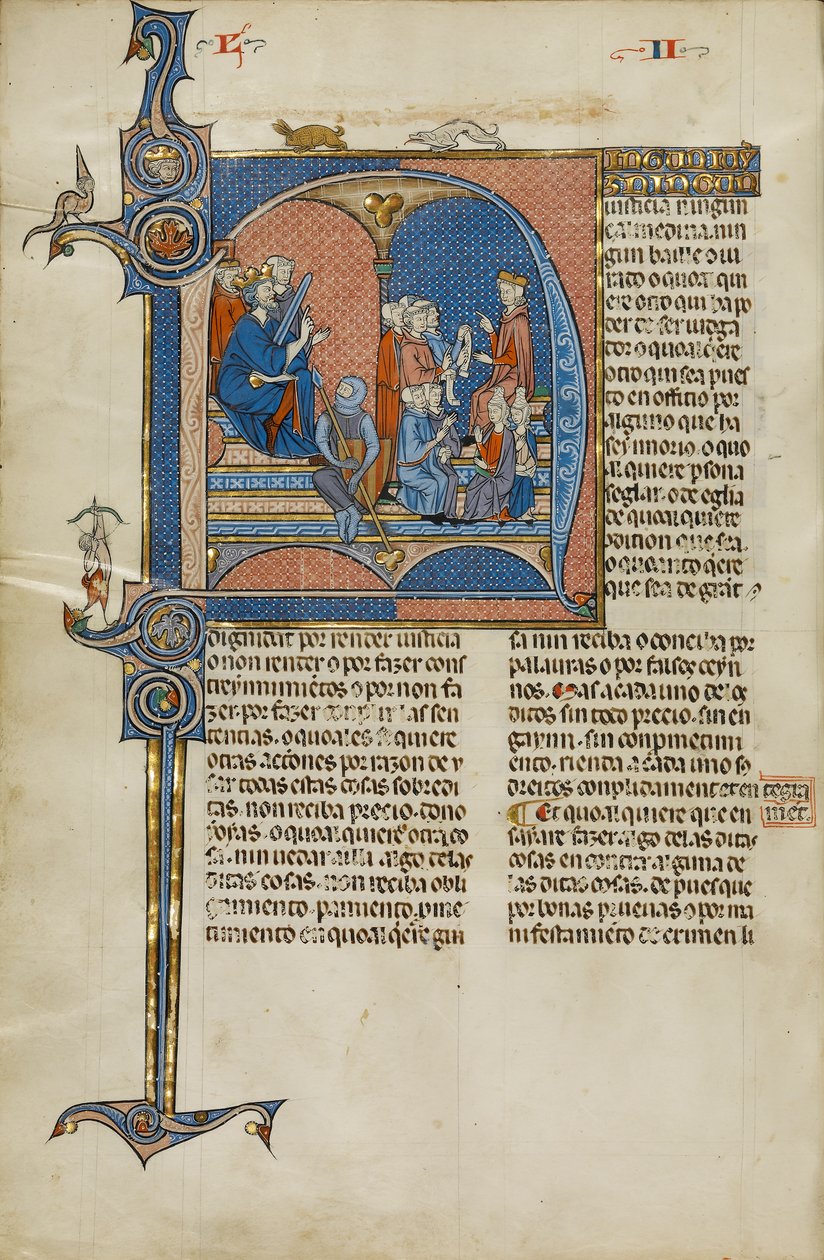 L II
NINGUN IUYȜ
Ȝ NINGUN
iusticia ningun
çalmedina nin
gun baille o iu
rado o quoal qui
ere otro qui ha po
der de ser iudga
dor o quoal q̃ere
otro qui sea pues
to en offitio por
alguno que ha
seynnorio. o quo
al quiere psona
seglar. o de eglia
de quoal quiere
ꝯdition que sea.
o quanto q̃ere
que sea de grãt
dignidat por render iusticia
o non render o por fazer cons
treynnimiẽtos o por non fa
zer. por fazer conplir las sen
tencias. o quoales se quiere
otras actiones por razon de y
sar todas estas cosas sobredi
tas. non reciba precio. dono
ioyas. o quoal quiere otra co
sa. nin uedarailli algo delas
ditas cosas. non reciba obli
gamiento. pamiento. pme
timiento en quoal q̃ere gui
sa nin reciba o conciba por
palauras o por falsos ceyn
nos. Mas a cada uno de los
ditos sin todo precio. sin en
gaynno. sin conpmetimi
ento. rienda a cada uno so
dreitos conplidament et en tegra
ment.
Et quoal quiere que en
sayare fazer algo delas ditas
cosas en contra alguna de
las ditas cosas. de pues que
por bonas prueuas o por ma
nifestamiẽto de crimen li